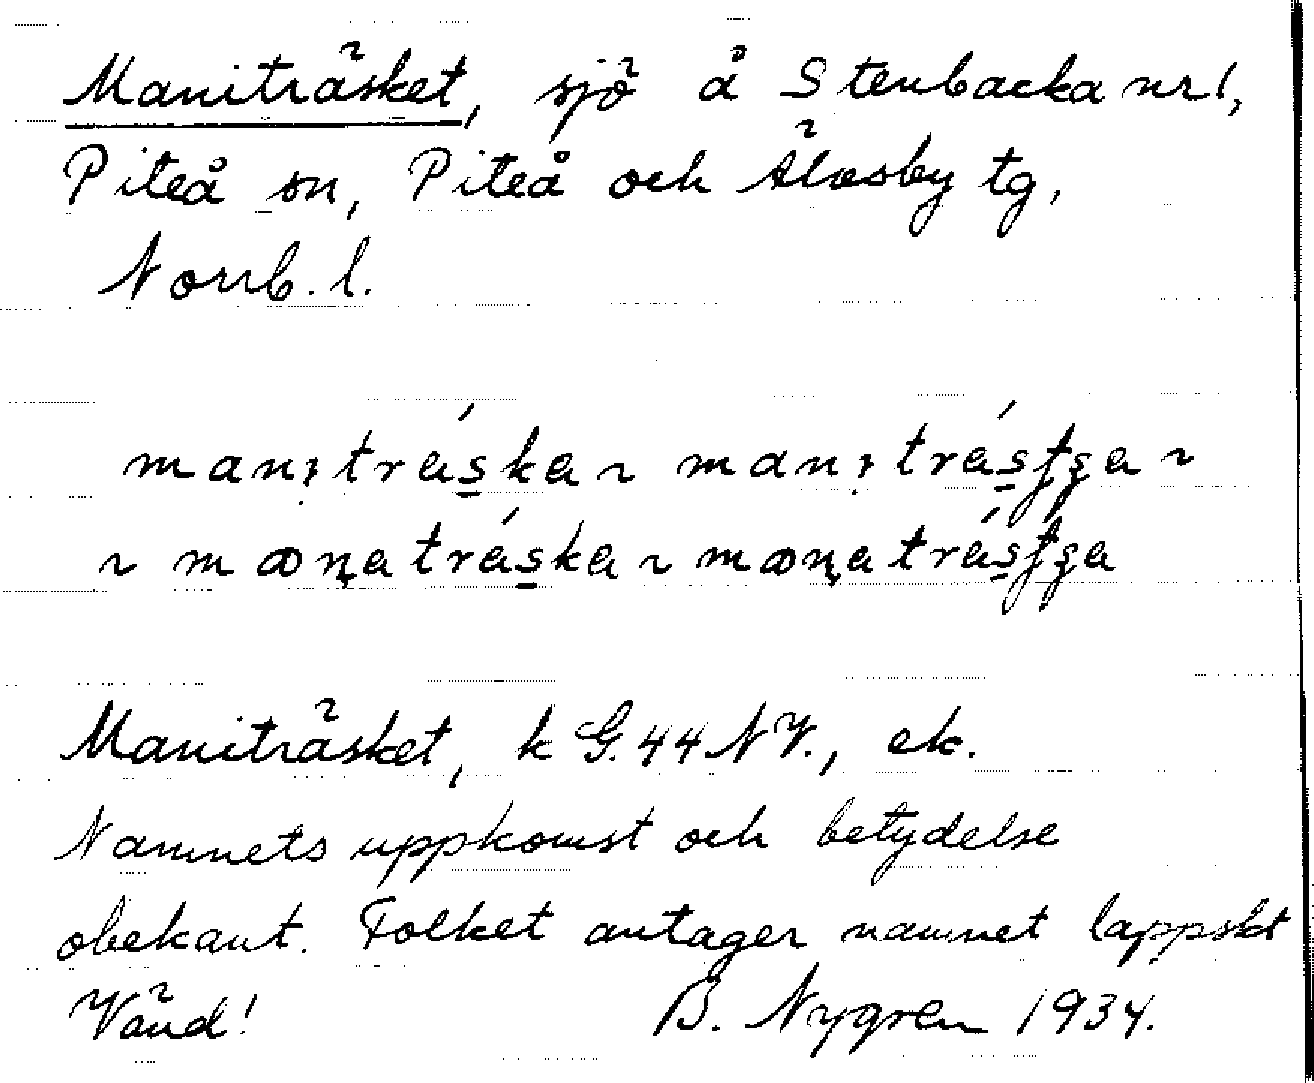 Maniträsket, sjö å Stenbacka nr 1,
Piteå sn, Piteå och Älvsby tg,
Norrb. l.
Maniträsket, k G. 44 NV., ek.
Namnets uppkomst och betydelse
obekant. Folket antager namnet lappskt
Vänd! B. Nygren 1934.